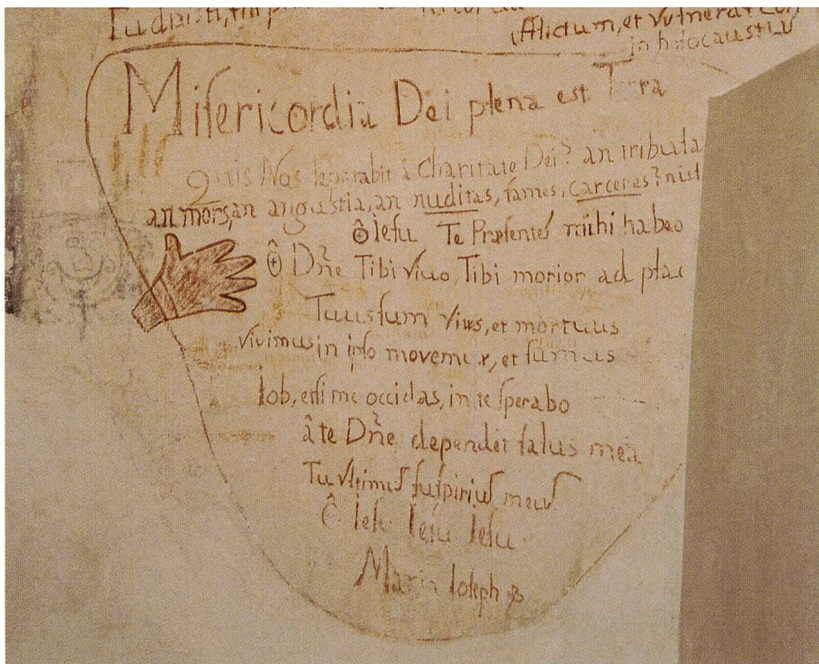 afflictum, et vulneratum
in holocaustū
Misericordia Dei plena est
Quis Nos separabit â Charitate Dei? an tribula
an mors, an angustia, an nuditas, fames, carceres? niil
ô Iesu Te Præsentem mihi habeo
ô Dn̄e Tibi vivo Tibi morior ad
Tuus sum vivus, et mortuus
vivimus in ipso movemur, et sumus
Iob, etsi me occidas, in te sperabo
â te Dn̄e dependet salus mea
Tu vltimus suspirius meus
Ô Iesu Iesu Iesu
Maria Ioseph